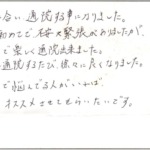 合い 通院する事になりました。
初めてで 不安と緊張がありましたが、
で楽しく通院出来ました。
通院するたび、徐々に良くなりました。
で悩んでる人がいれば、
オススメさせてもらいたいです。